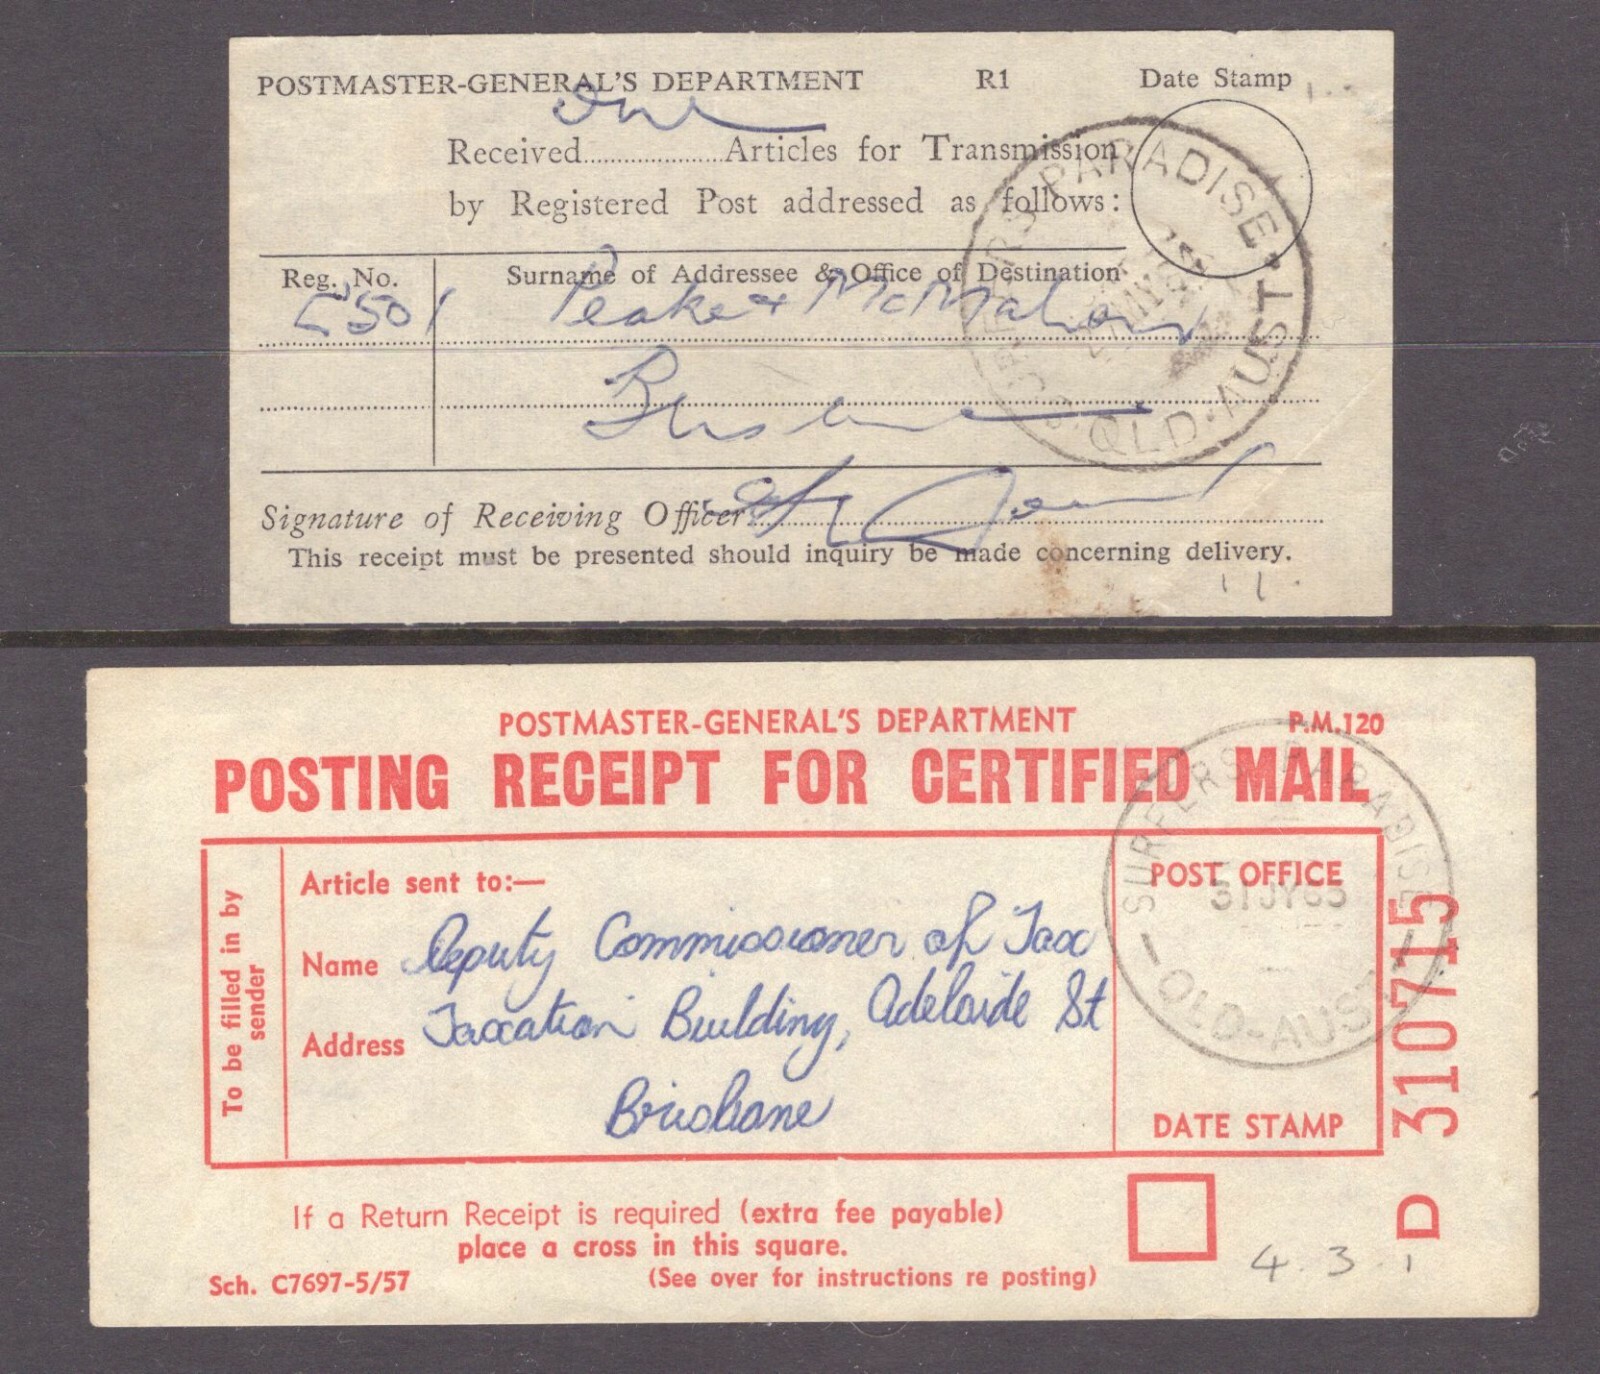 POSTMASTER-GENERAL'S DEPARTMENT R1 Date Stamp
one
Received....................Articles for Transmission
by Registered Post addressed as follows:
SURFERS PARADISE
QLD·AUST
Reg. No. Surname of Addressee & Office of Destination
5501 Peake & McMahon
Brisbane
Signature of Receiving Officer
This receipt must be presented should inquiry be made concerning delivery.
POSTMASTER-GENERAL'S DEPARTMENT P.M.120
POSTING RECEIPT FOR CERTIFIED MAIL
To be filled in by
sender
Article sent to:—
Name Deputy Commissioner of Tax
Address Taxation Building, Adelaide St
Brisbane
POST OFFICE
SURFERS PARADISE
31JY63
QLD-AUST
DATE STAMP
310715
D
If a Return Receipt is required (extra fee payable)
place a cross in this square.
Sch. C7697-5/57 (See over for instructions re posting)
4.3.1